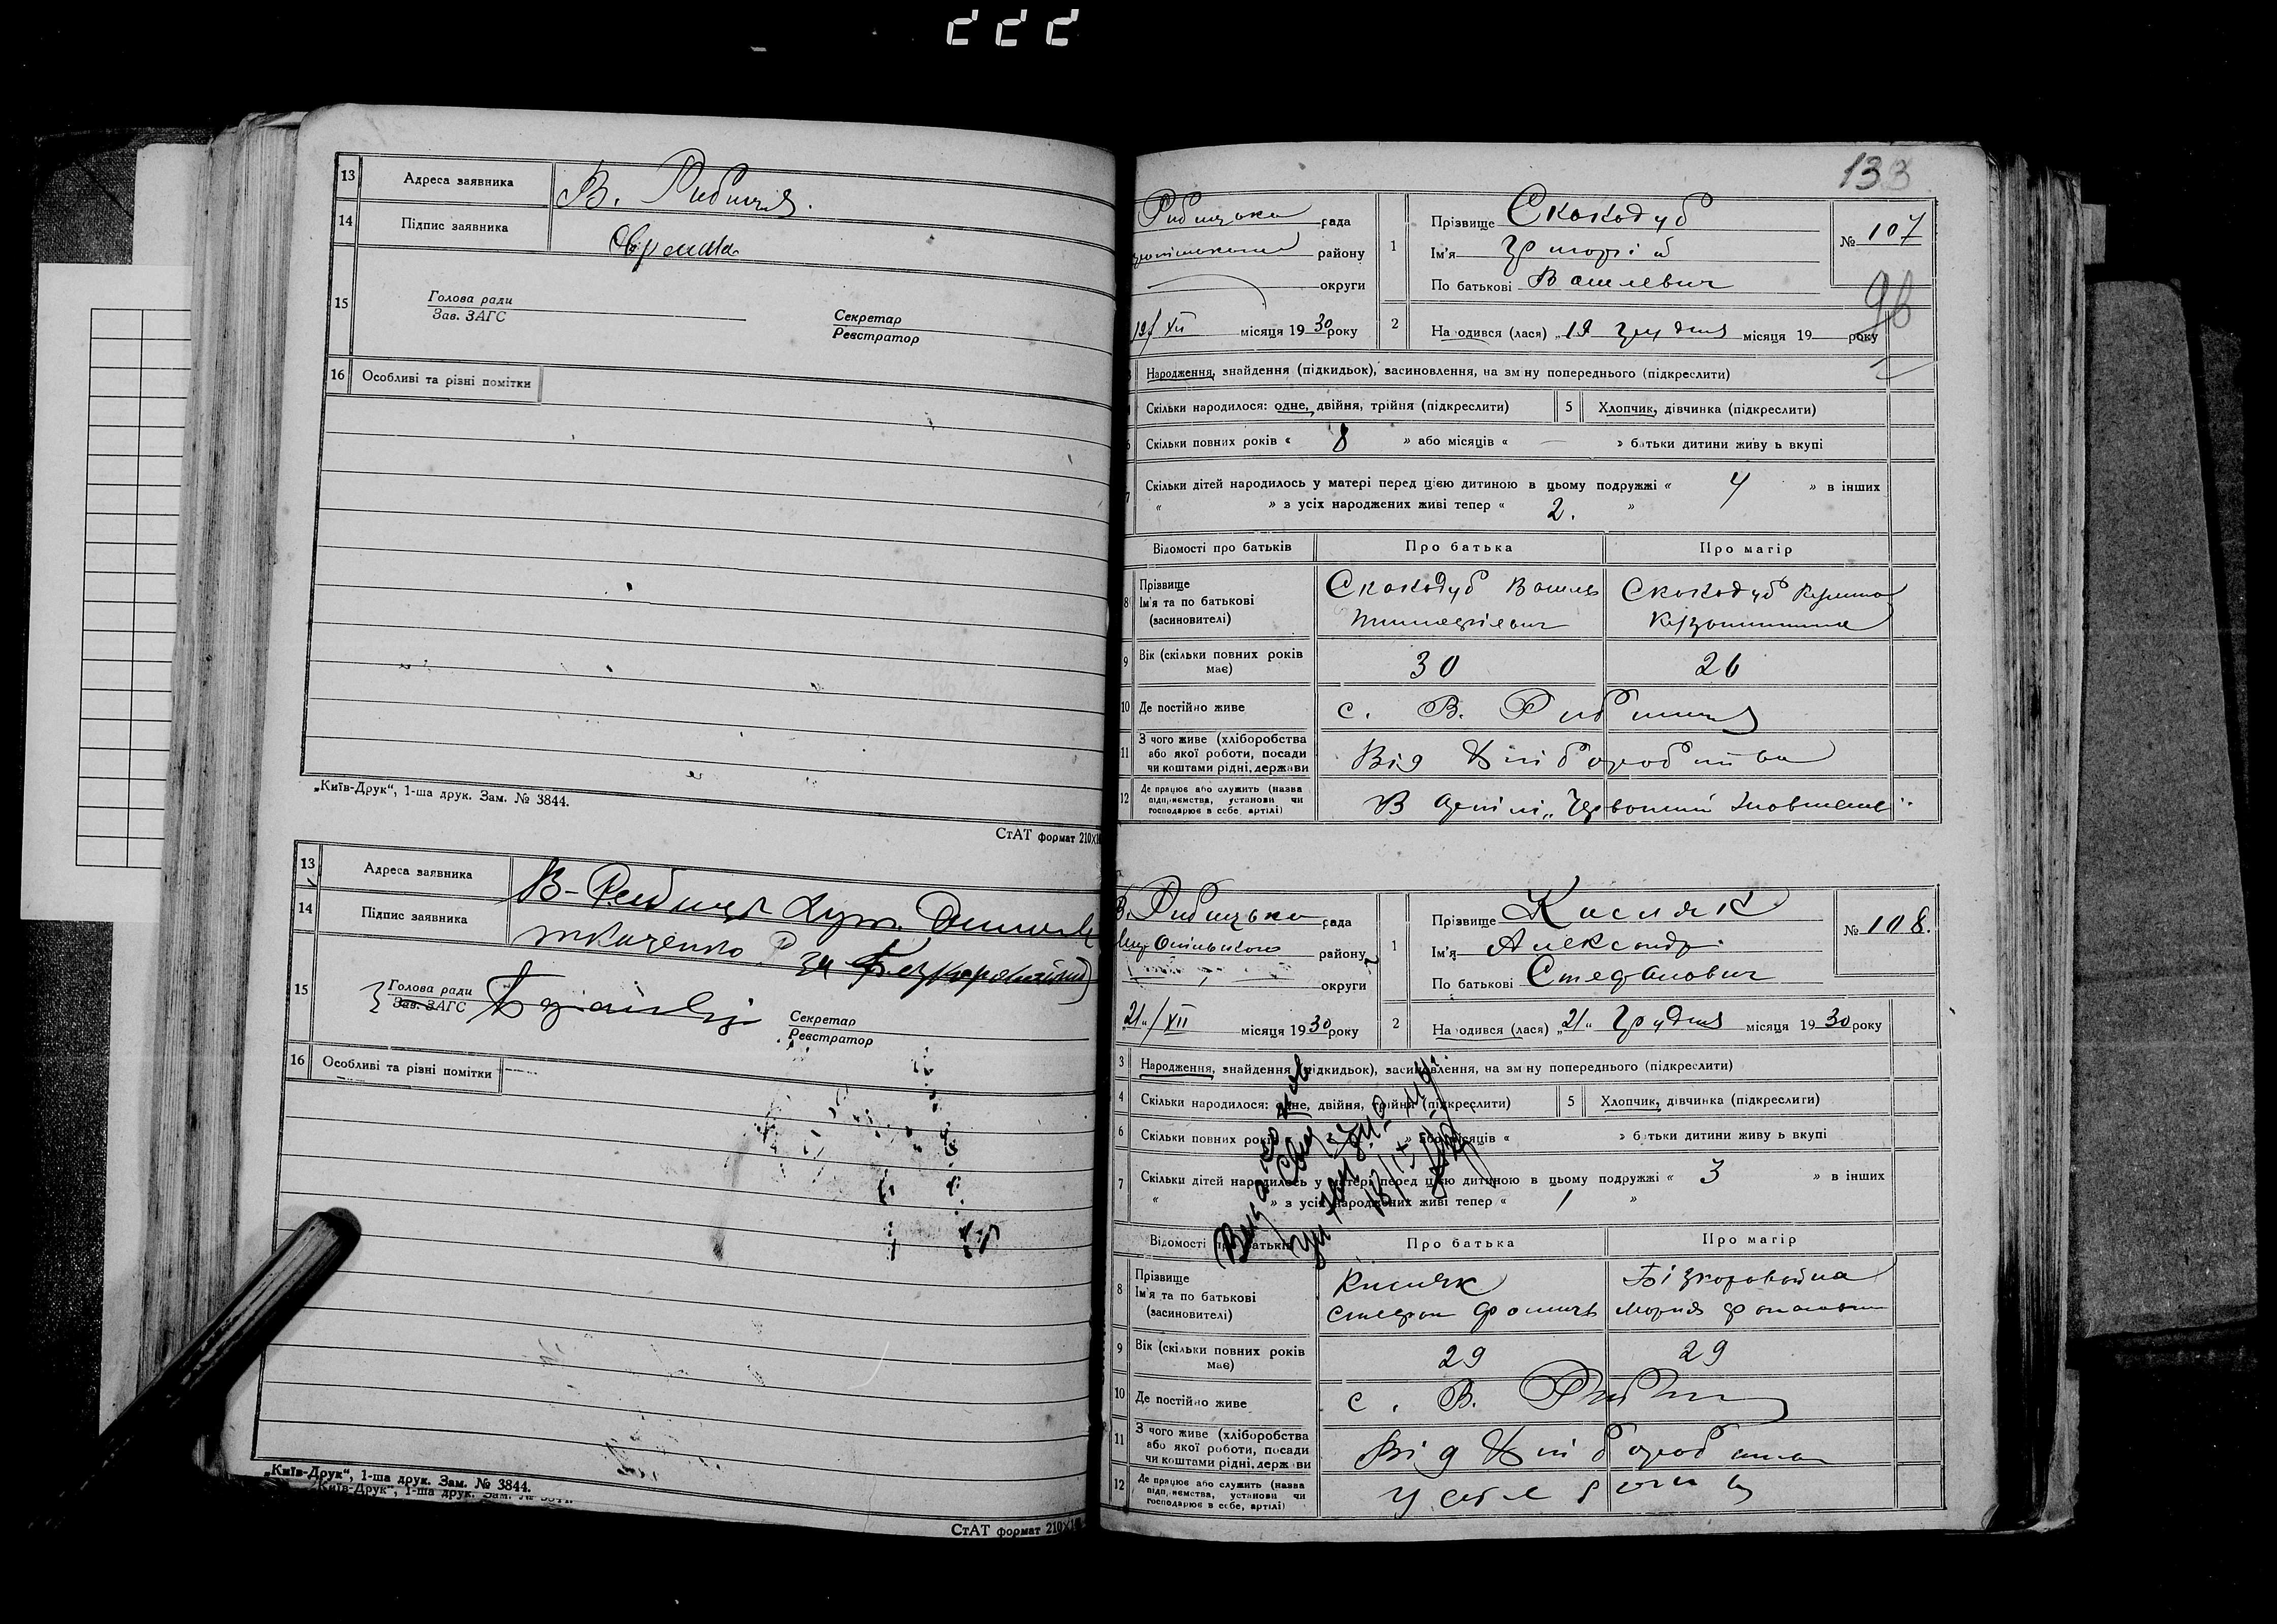 222
13 Адреса заявника В. Рибиця.
14 Підпис заявника
15 Голова ради
Зав. ЗАГС
Секретар
Реєстратор
16 Особливі та різні помітки
„Київ-Друк“, 1-ша друк. Зам. № 3844.
СтАТ формат 210×1
13 Адреса заявника В-Рибиця
14 Підпис заявника
15 Голова ради
Зав. ЗАГС
Секретар
Реєстратор
16 Особливі та різні помітки
„Київ-Друк“, 1-ша друк. Зам. № 3844.
СтАТ формат 210×1
133
Рибицька рада
району
округи
19/XII місяця 1930 року
1 Прізвище Скакодуб
Ім'я Григорій
По батькові Василевич
№ 107
98
2 На одився (лася) „19 грудня місяця 19 року
Народження, знайдення (підкидьок), засиновлення, на зм ну попереднього (підкреслити)
Скільки народилося: одне, двійня, трійня (підкреслити) 5 Хлопчик, дівчинка (підкреслити)
Скільки повних років « 8 » або місяців « — » батьки дитини живу ь вкупі
Скільки дітей народилось у матері перед цією дитиною в цьому подружжі « 4 » в інших
« » з усіх народжених живі тепер « 2. »
Відомості про батьків Про батька Про матір
8 Прізвище
Ім'я та по батькові
(засиновителі)
Скакодуб Василь
Скакодуб
9 Вік (скільки повних років має) 30 26
10 Де постійно живе с. В. Рибиця
11 З чого живе (хліборобства
або якої роботи, посади
чи коштами рідні, держави
Від Хліборобства
12 Де працює або служить (назва
підприємства, установи чи
господарює в себе, артілі)
В Артілі „Червоний
В. Рибицька рада
району
округи
21/XII місяця 1930 року
1 Прізвище Кисляк
Ім'я Александр
По батькові Стефанович
№ 108.
2 На одився (лася) „21“ Грудня місяця 1930 року
3 Народження, знайдення (підкидьок), засиновлення, на зм ну попереднього (підкреслити)
4 Скільки народилося: одне, двійня, трійня (підкреслити) 5 Хлопчик, дівчинка (підкреслити)
6 Скільки повних років » або місяців « » б тьки дитини живу ь вкупі
7 Скільки дітей народилось у матері перед цією дитиною в цьому подружжі « 3 » в інших
« » з усіх народжених живі тепер « 1 »
Відомості про батьків Про батька Про матір
8 Прізвище
Ім'я та по батькові
(засиновителі)
Кисляк Бізкоровойна
Стефан Мория
9 Вік (скільки повних років має) 29 29
10 Де постійно живе с. В. Рибиця
11 З чого живе (хліборобства
або якої роботи, посади
чи коштами рідні, держ ви
Від Хліборобства
12 Де працює або служить (назва
підп, иємства, установи чи
господарює в себе, артілі)
У себе